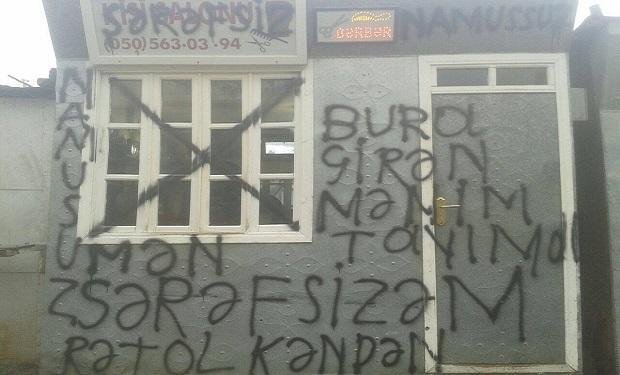 KİŞİ SALONU
ŞƏRƏFSİZ
(050) 563·03·94
BƏRBƏR
NAMUSSUZ
NAMUSUZ
BURa
GİRƏN
MƏNİM
TaYIMdı
MƏN
ŞƏRƏFSİZƏM
RƏTOL KƏNDƏN